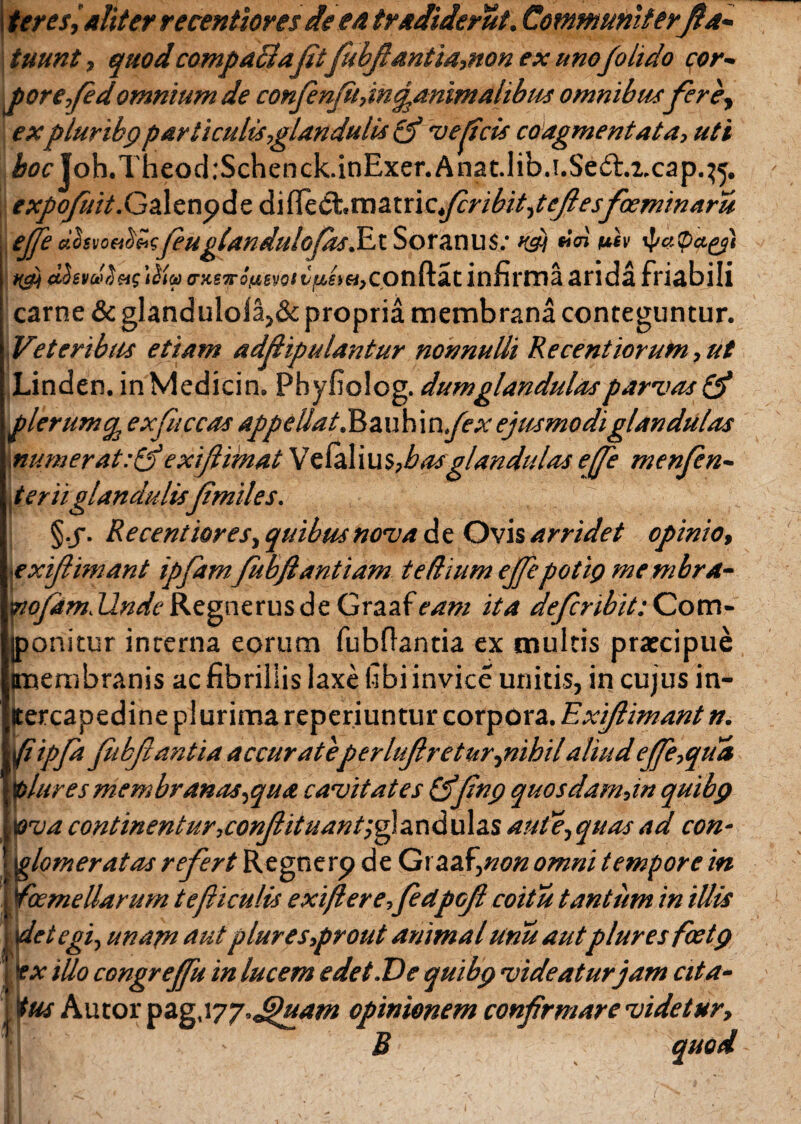 teres, aliter recentiores de ea tradiderūt. Communiter sta-
tuunt, quod compacta sit substantia, non ex uno solido cor-
pore, sed omnium de consensu, inq; animalibus omnibus fere,
ex pluribꝯ particulis, glandulis & vesicis coagmentata, uti
hoc Joh. Theod: Schenck. in Exer. Anat. lib. 1. Sect. 2. cap. 35.
exposuit. Galenꝯ de dissect. matric. scribit, testes fœminarū
esse ἀδενοειδεῖς seu glandulosas. Et Soranus: καὶ εἰσι μὲν ψαφαροὶ
καὶ ἀδενώδεις ἰδίῳ σκεπόμενοι ὑμένει, constat infirmâ aridâ friabili
carne & glandulosâ, & propriâ membranâ conteguntur.
Veteribus etiam adstipulantur nonnulli Recentiorum, ut
Linden. in Medicin. Physiolog. dum glandulas parvas &
plerumq; exsuccas appellat. Bauhin. sex ejusmodi glandulas
numerat: & existimat Vesalius, has glandulas esse mensen-
terii glandulis similes.
§. 5. Recentiores, quibus nova de Ovis arridet opinio,
existimant ipsam substantiam testium esse potiꝯ membra-
nosam. Unde Regnerus de Graaf eam ita describit: Com-
ponitur interna eorum substantia ex multis præcipuè
membranis ac fibrillis laxè sibi invicē unitis, in cujus in-
tercapedine plurima reperiuntur corpora. Existimant n.
si ipsa substantia accuratè perlustretur, nihil aliud esse, quā
plures membranas, quæ cavitates & sinꝯ quosdam, in quibꝯ
ova continentur, constituant; glandulas autē, quas ad con-
glomeratas refert Regnerꝯ de Graaf, non omni tempore in
fœmellarum testiculis existere, sed post coitū tantùm in illis
detegi, unam aut plures, prout animal unū aut plures fœtꝯ
ex illo congressu in lucem edet. De quibꝯ videatur jam cita-
tus Autor pag. 177. Quam opinionem confirmare videtur,
B quod